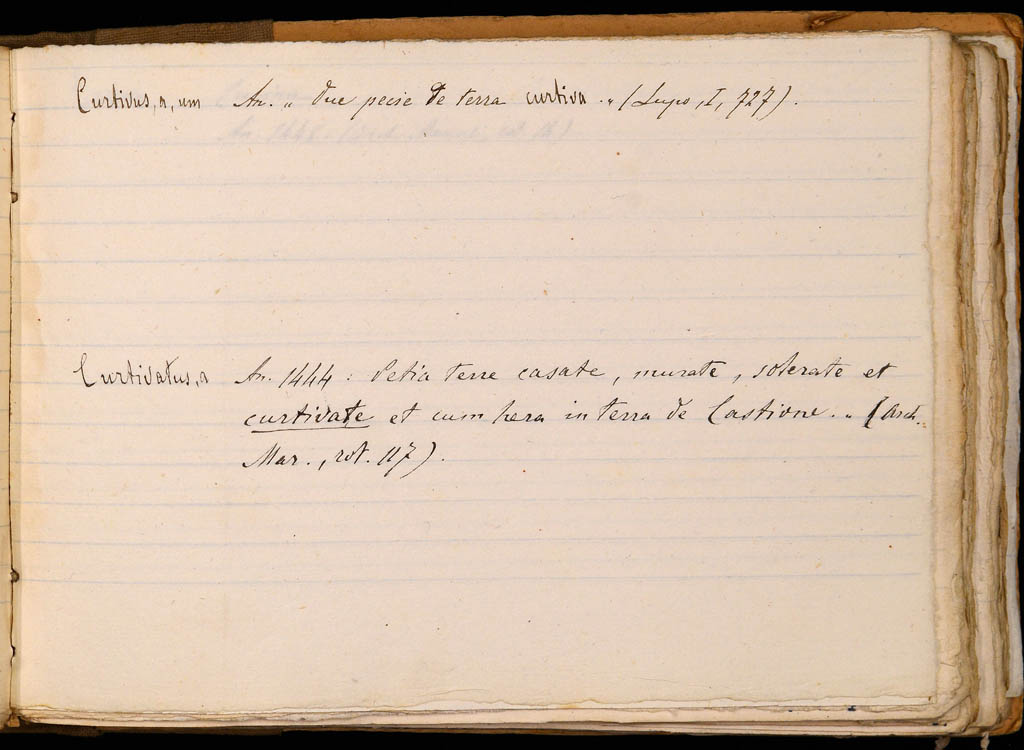 Curtivus, a, um An. „ due pecie de terra curtiva. „ (Lupo, I, 727).
Curtivatus, a An. 1444: Petia terre casate, murate, solerate et
curtivate et cum hera in terra de Castione. „ (Arch.
Mar., rot. 117).